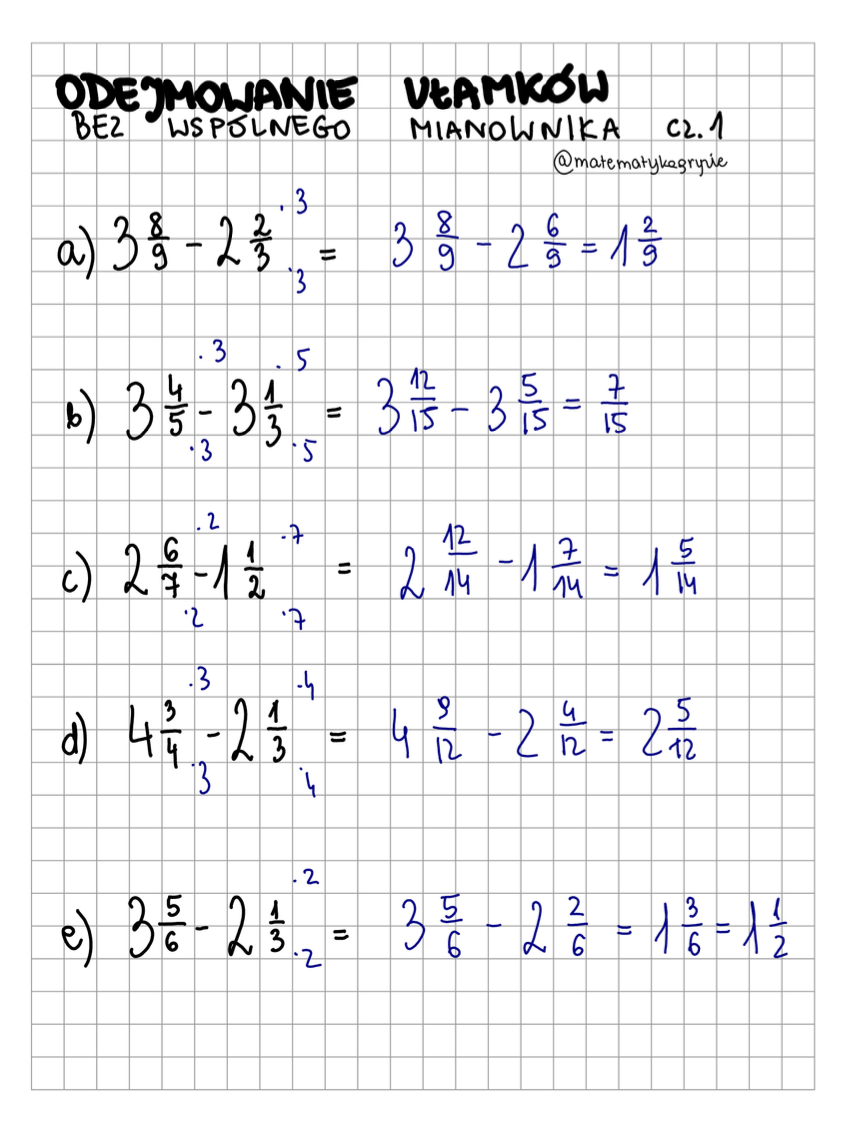 ODEJMOWANIE UŁAMKÓW
BEZ WSPÓLNEGO MIANOWNIKA CZ. 1
@matematykagryzie
a) 3 8/9 - 2 2/3 (·3 / ·3) = 3 8/9 - 2 6/9 = 1 2/9
b) 3 4/5 (·3 / ·3) - 3 1/3 (·5 / ·5) = 3 12/15 - 3 5/15 = 7/15
c) 2 6/7 (·2 / ·2) - 1 1/2 (·7 / ·7) = 2 12/14 - 1 7/14 = 1 5/14
d) 4 3/4 (·3 / ·3) - 2 1/3 (·4 / ·4) = 4 9/12 - 2 4/12 = 2 5/12
e) 3 5/6 - 2 1/3 (·2 / ·2) = 3 5/6 - 2 2/6 = 1 3/6 = 1 1/2